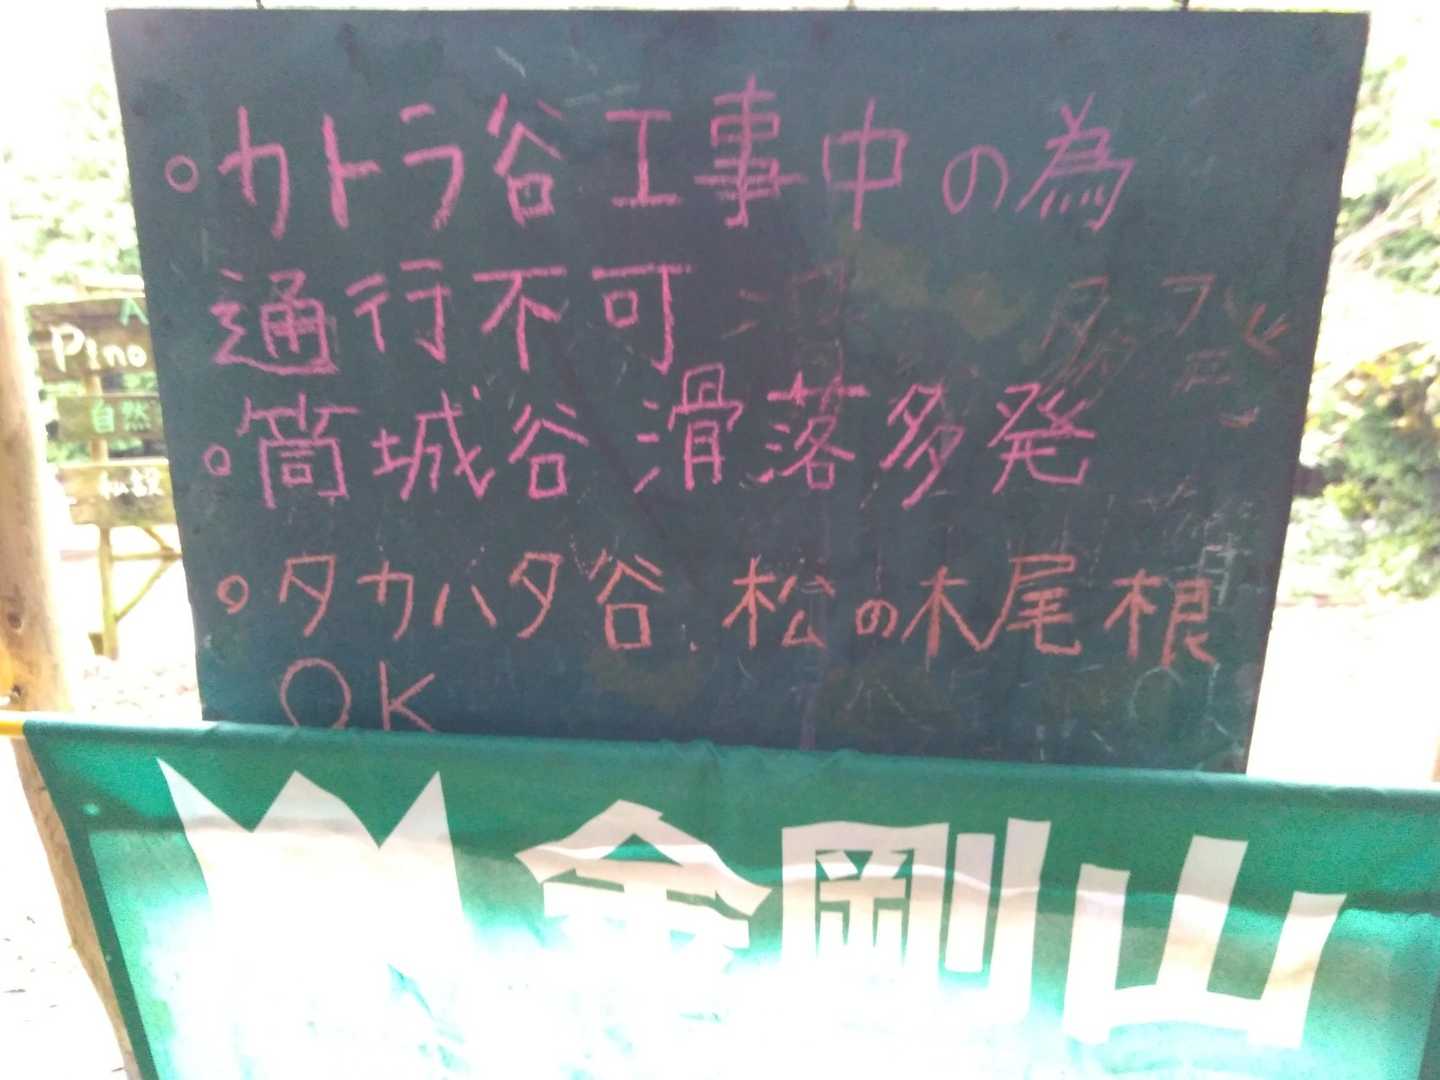 。カトラ谷工事中の為
通行不可
。筒城谷 滑落多発
。タカハタ谷.松の木尾根
OK
金剛山
Pino
自然